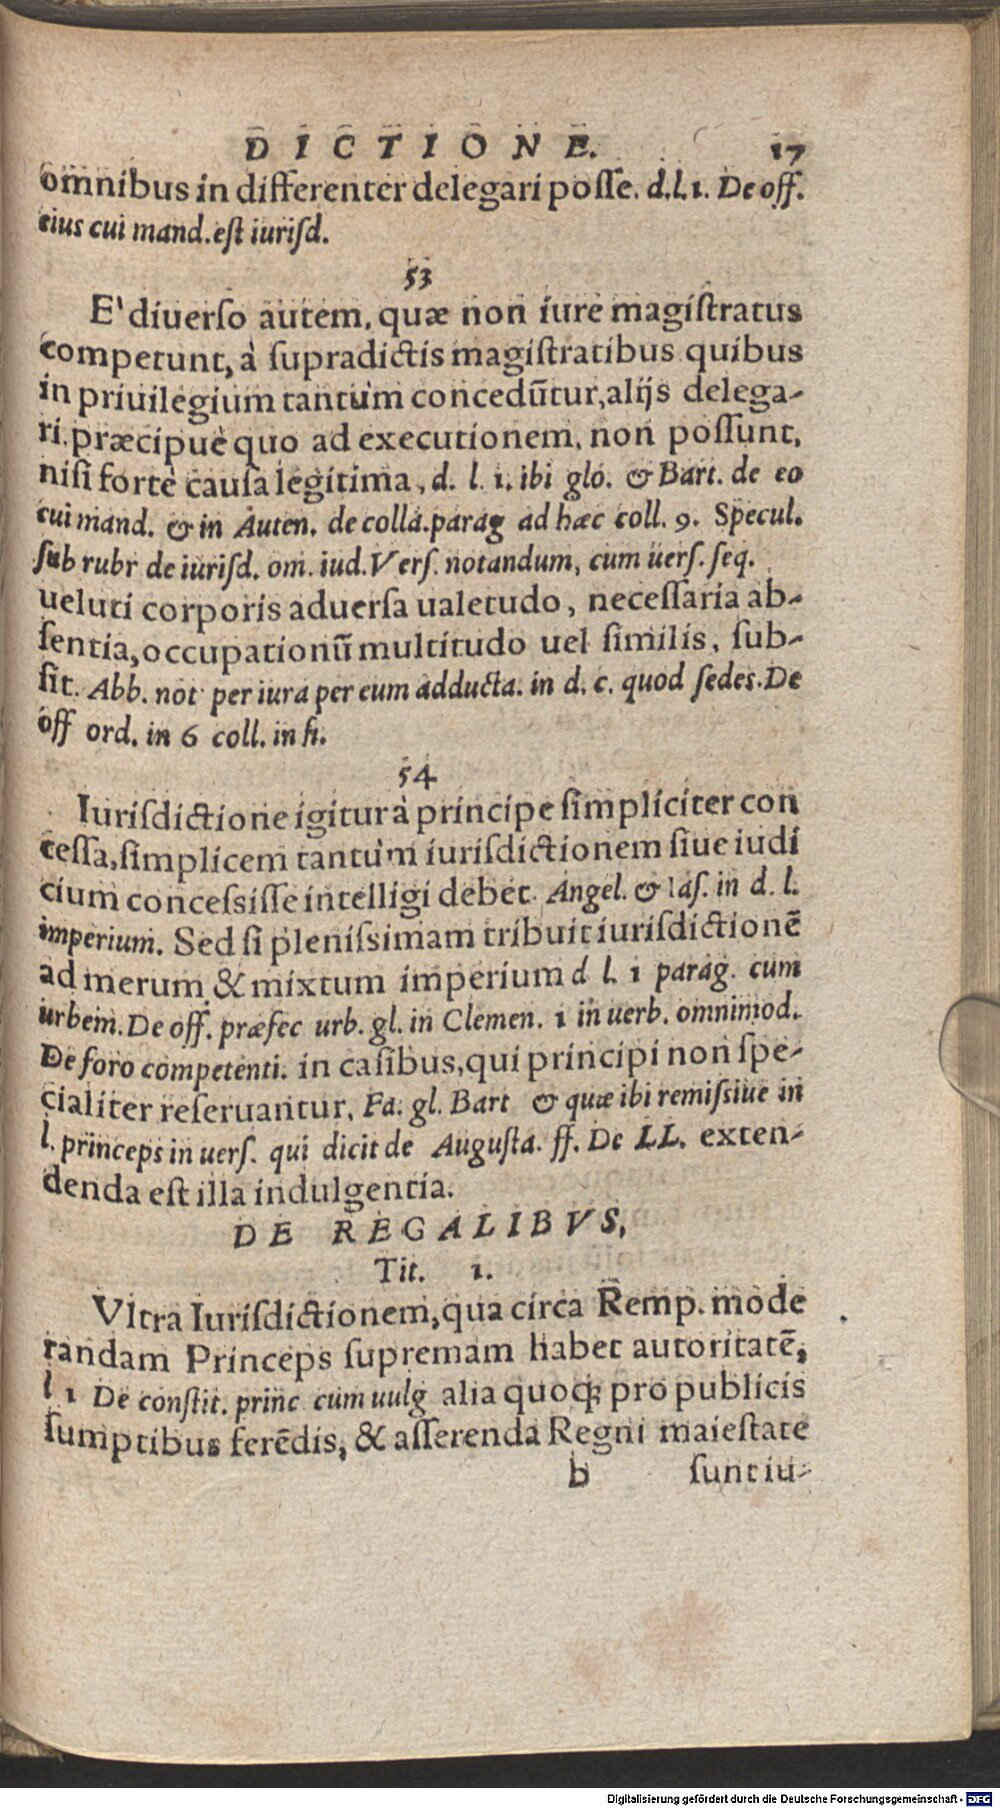 DICTIONE. 17
omnibus in differenter delegari posſe. d.l.1. De off.
eius cui mand.est iuriſd.
53
E' diuerſo autem, quæ non iure magiſtratus
competunt, à ſupradictis magiſtratibus quibus
in priuilegium tantùm concedūtur, alijs delega-
ri, præcipuè quo ad executionem, non poſſunt,
niſi fortè cauſa legitima, d. l. 1. ibi glo. & Bart. de eo
cui mand. & in Auten. de colla.parag ad hæc coll. 9. Specul.
ſub rubr de iuriſd. om. iud. Verſ. notandum, cum uerſ. ſeq.
ueluti corporis aduerſa ualetudo, neceſſaria ab-
ſentia, occupationū multitudo uel ſimilis, ſub-
ſit. Abb. not per iura per eum adducta. in d. c. quod ſedes. De
off ord. in 6 coll. in fi.
54
Iuriſdictione igitur à principe ſimpliciter con
ceſſa, ſimplicem tantùm iuriſdictionem ſiue iudi
cium conceſsiſſe intelligi debet. Angel. & Iaſ. in d. l.
imperium. Sed ſi pleniſsimam tribuit iuriſdictionē
ad merum & mixtum imperium d l. 1 parag. cum
urbem. De off. præfec urb. gl. in Clemen. 1 in uerb. omnimod.
De foro competenti. in caſibus, qui principi non ſpe-
cialiter reſeruantur, Fa. gl. Bart & quæ ibi remiſsiue in
l. princeps in uerſ. qui dicit de Auguſta. ff. De LL. exten-
denda eſt illa indulgentia.
DE REGALIBVS,
Tit. 1.
Vltra Iuriſdictionem, qua circa Remp. mode
randam Princeps ſupremam habet autoritatē,
l 1 De conſtit. princ cum uulg alia quoq; pro publicis
ſumptibus ferēdis, & aſſerenda Regni maieſtate
b ſunt iu-
Digitalisierung gefördert durch die Deutsche Forschungsgemeinschaft - DFG